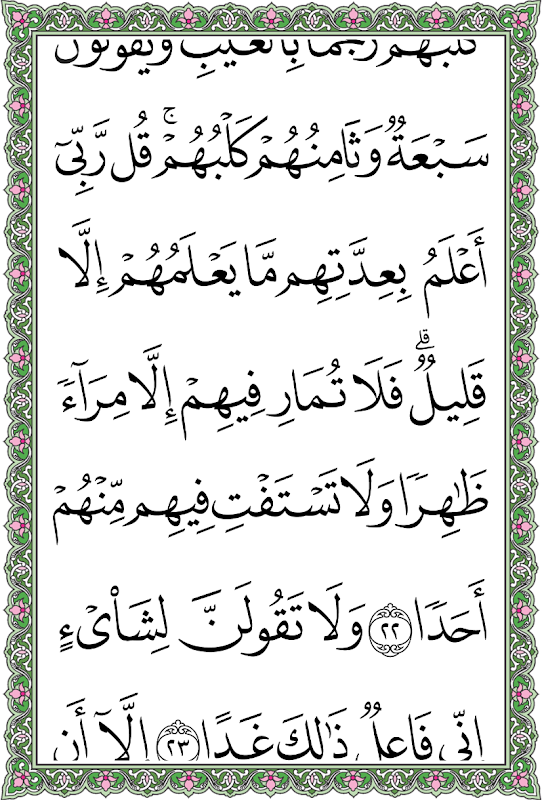 كَلۡبُهُمۡ رَجۡمَۢا بِٱلۡغَيۡبِۖ وَيَقُولُونَ
سَبۡعَةٞ وَثَامِنُهُمۡ كَلۡبُهُمۡۚ قُل رَّبِّيٓ
أَعۡلَمُ بِعِدَّتِهِم مَّا يَعۡلَمُهُمۡ إِلَّا
قَلِيلٞۗ فَلَا تُمَارِ فِيهِمۡ إِلَّا مِرَآءٗ
ظَٰهِرٗا وَلَا تَسۡتَفۡتِ فِيهِم مِّنۡهُمۡ
أَحَدٗا ٢٢ وَلَا تَقُولَنَّ لِشَاْيۡءٍ
إِنِّي فَاعِلٞ ذَٰلِكَ غَدًا ٢٣ إِلَّآ أَن